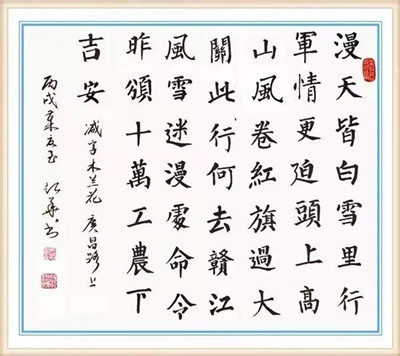 漫天皆白雪里行
軍情更迫頭上高
山風卷紅旗過大
關此行何去贛江
風雪迷漫處命令
昨頒十萬工農下
吉安
减字木兰花 廣昌路上
丙戌